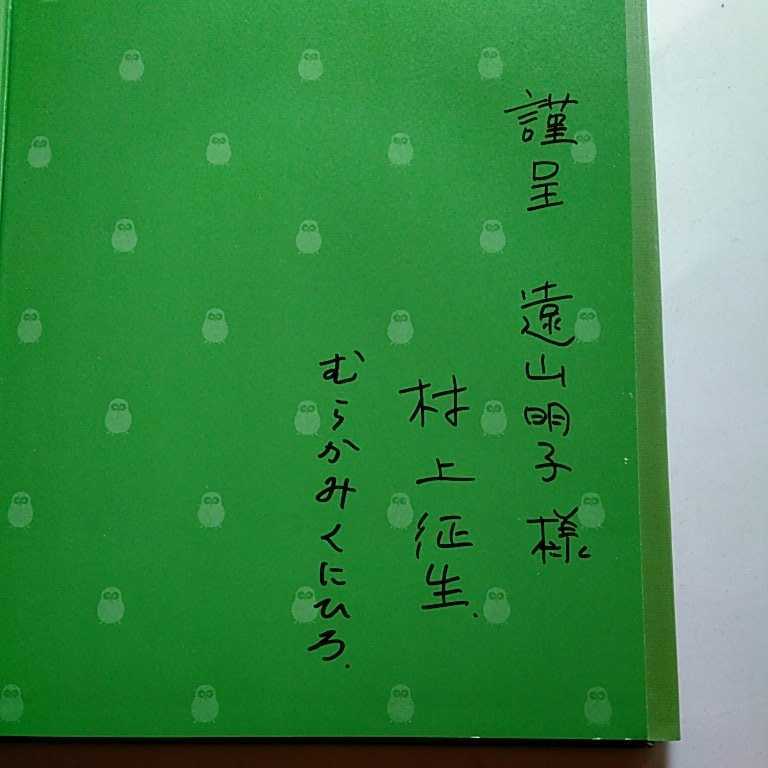 謹呈 遠山明子様
村上征生.
むらかみくにひろ.